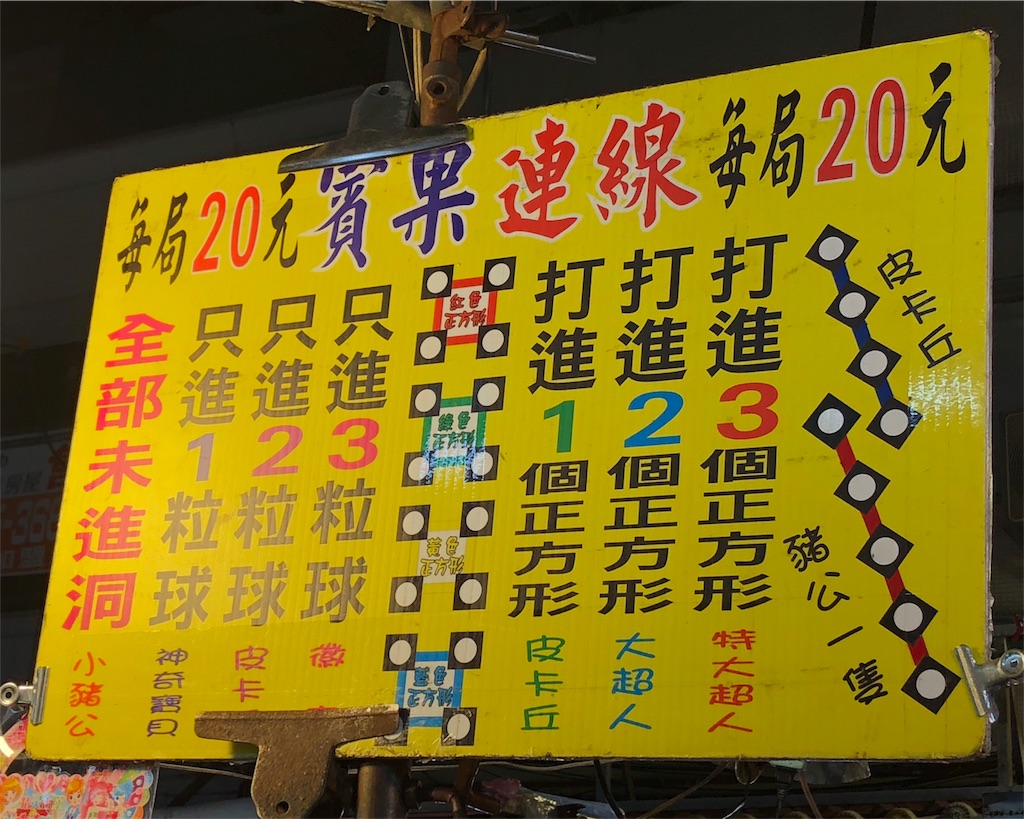 每局20元賓果連線每局20元
全部未進洞
小豬公
只進1粒球
神奇寶貝
只進2粒球
皮卡
只進3粒球
徽
紅色
正方形
綠色
正方形
黃色
正方形
藍色
正方形
打進1個正方形
皮卡丘
打進2個正方形
大超人
打進3個正方形
特大超人
皮卡丘
豬公一隻